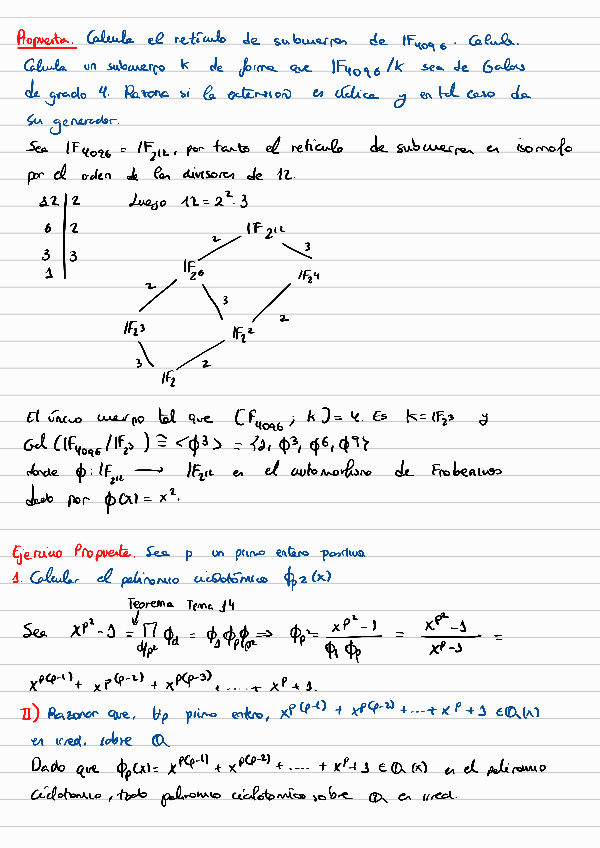 Propuesta. Calcula el retículo de subcuerpos de IF4096. Calcula.
Calcula un subcuerpo K de forma que IF4096/K sea de Galois
de grado 4. Razona si la extensión es cíclica y en tal caso da
su generador.
Sea IF4096 = IF2^12, por tanto el retículo de subcuerpos es isomorfo
por el orden de los divisores de 12.
12 | 2 Luego 12 = 2^2 · 3
6 | 2
3 | 3
1
IF2^12
2 3
IF2^6 IF2^4
2 3 2
IF2^3 IF2^2
3 2
IF2
El único cuerpo tal que [F4096 : K] = 4. Es K = IF2^3 y
Gal (IF4096/IF2^3) ≅ <ϕ^3> = {1, ϕ^3, ϕ^6, ϕ^9}
donde ϕ: IF2^12 → IF2^12 es el automorfismo de Frobenius
dado por ϕ(x) = x^2.
Ejercicio Propuesto. Sea p un primo entero positivo
1. Calcular el polinomio ciclotómico ϕp^2(x)
Teorema Tema 14
Sea x^p^2 - 1 = ∏ d/p^2 ϕd = ϕ1 ϕp ϕp^2 ⇒ ϕp^2 = (x^p^2 - 1)/(ϕ1 ϕp) = (x^p^2 - 1)/(x^p - 1) =
x^p(p-1) + x^p(p-2) + x^p(p-3) + .... + x^p + 1.
II) Razonar que, ∀p primo entero, x^p(p-1) + x^p(p-2) + ... + x^p + 1 ∈ Q(x)
es irred. sobre Q
Dado que ϕp(x) = x^p(p-1) + x^p(p-2) + .... + x^p + 1 ∈ Q(x) es el polinomio
ciclotomico, todo polinomio ciclotomico sobre Q es irred.